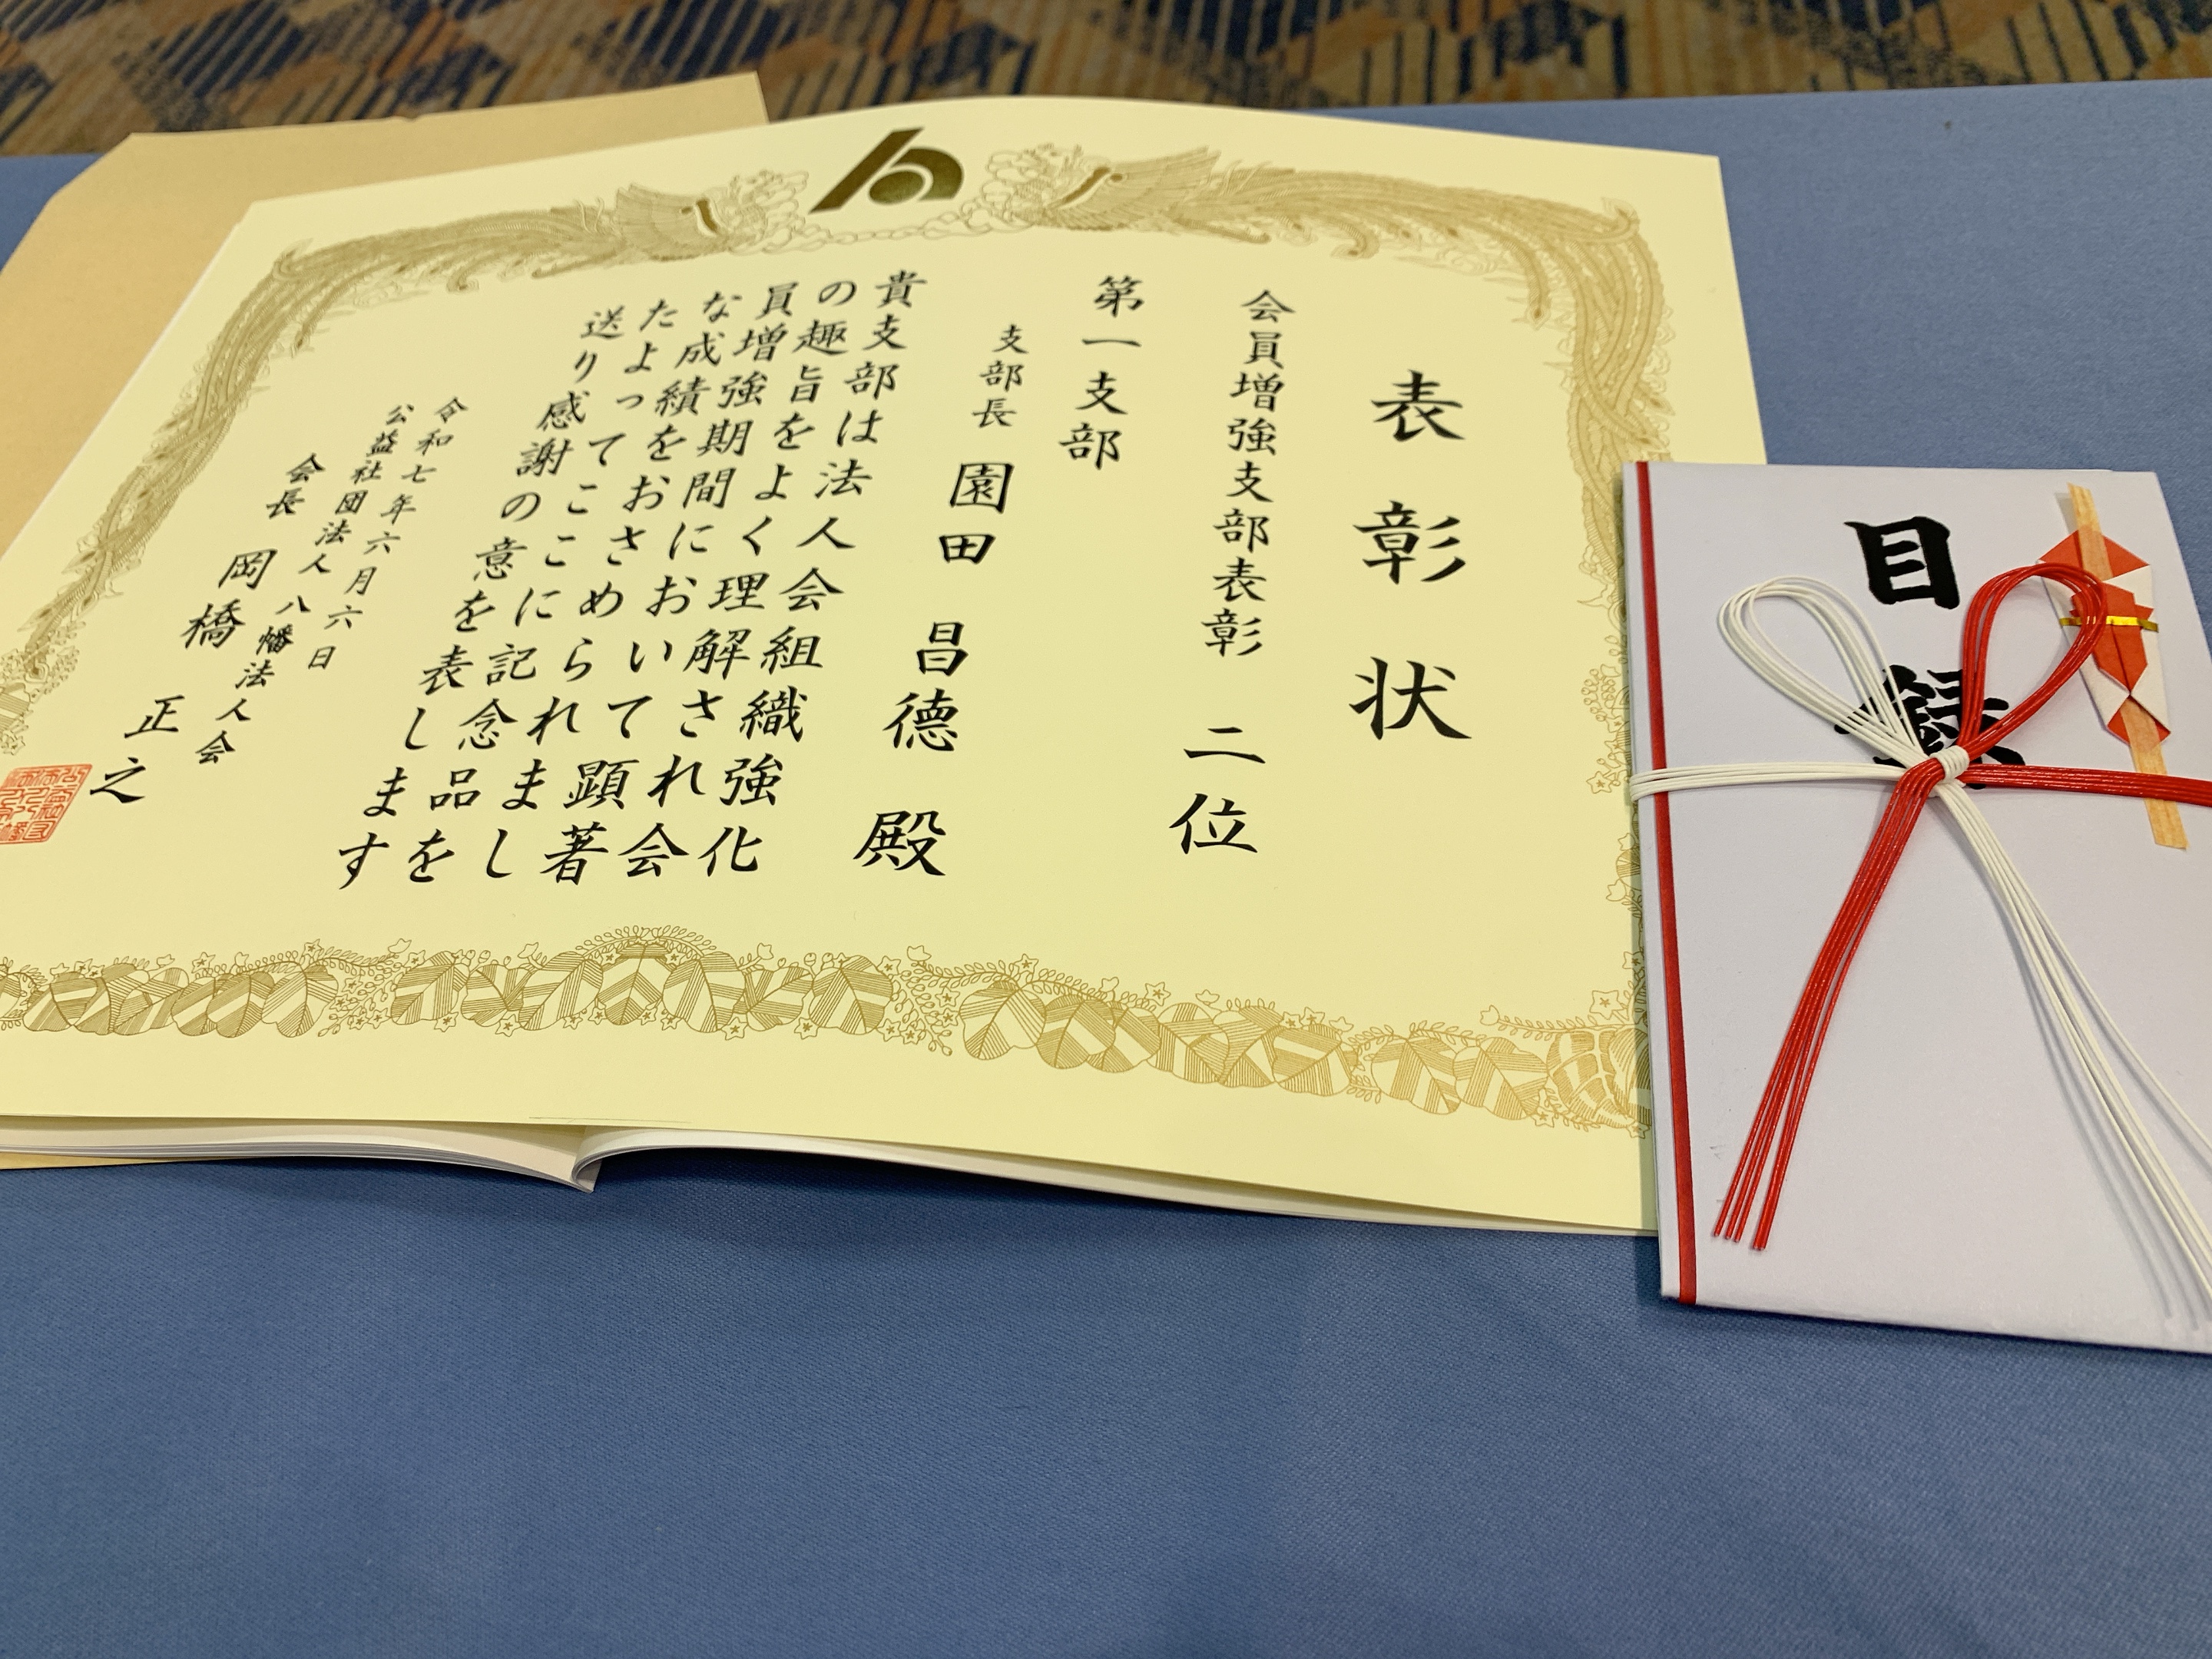 表彰状
会員増強支部表彰 二位
第一支部
支部長 園田 昌德 殿
貴支部は法人会組織強化
の趣旨をよく理解され会
員増強期間において顕著
な成績をおさめられまし
たよってここに記念品を
送り感謝の意を表します
令和七年六月六日
公益社団法人 八幡法人会
会長 岡橋 正之
目録